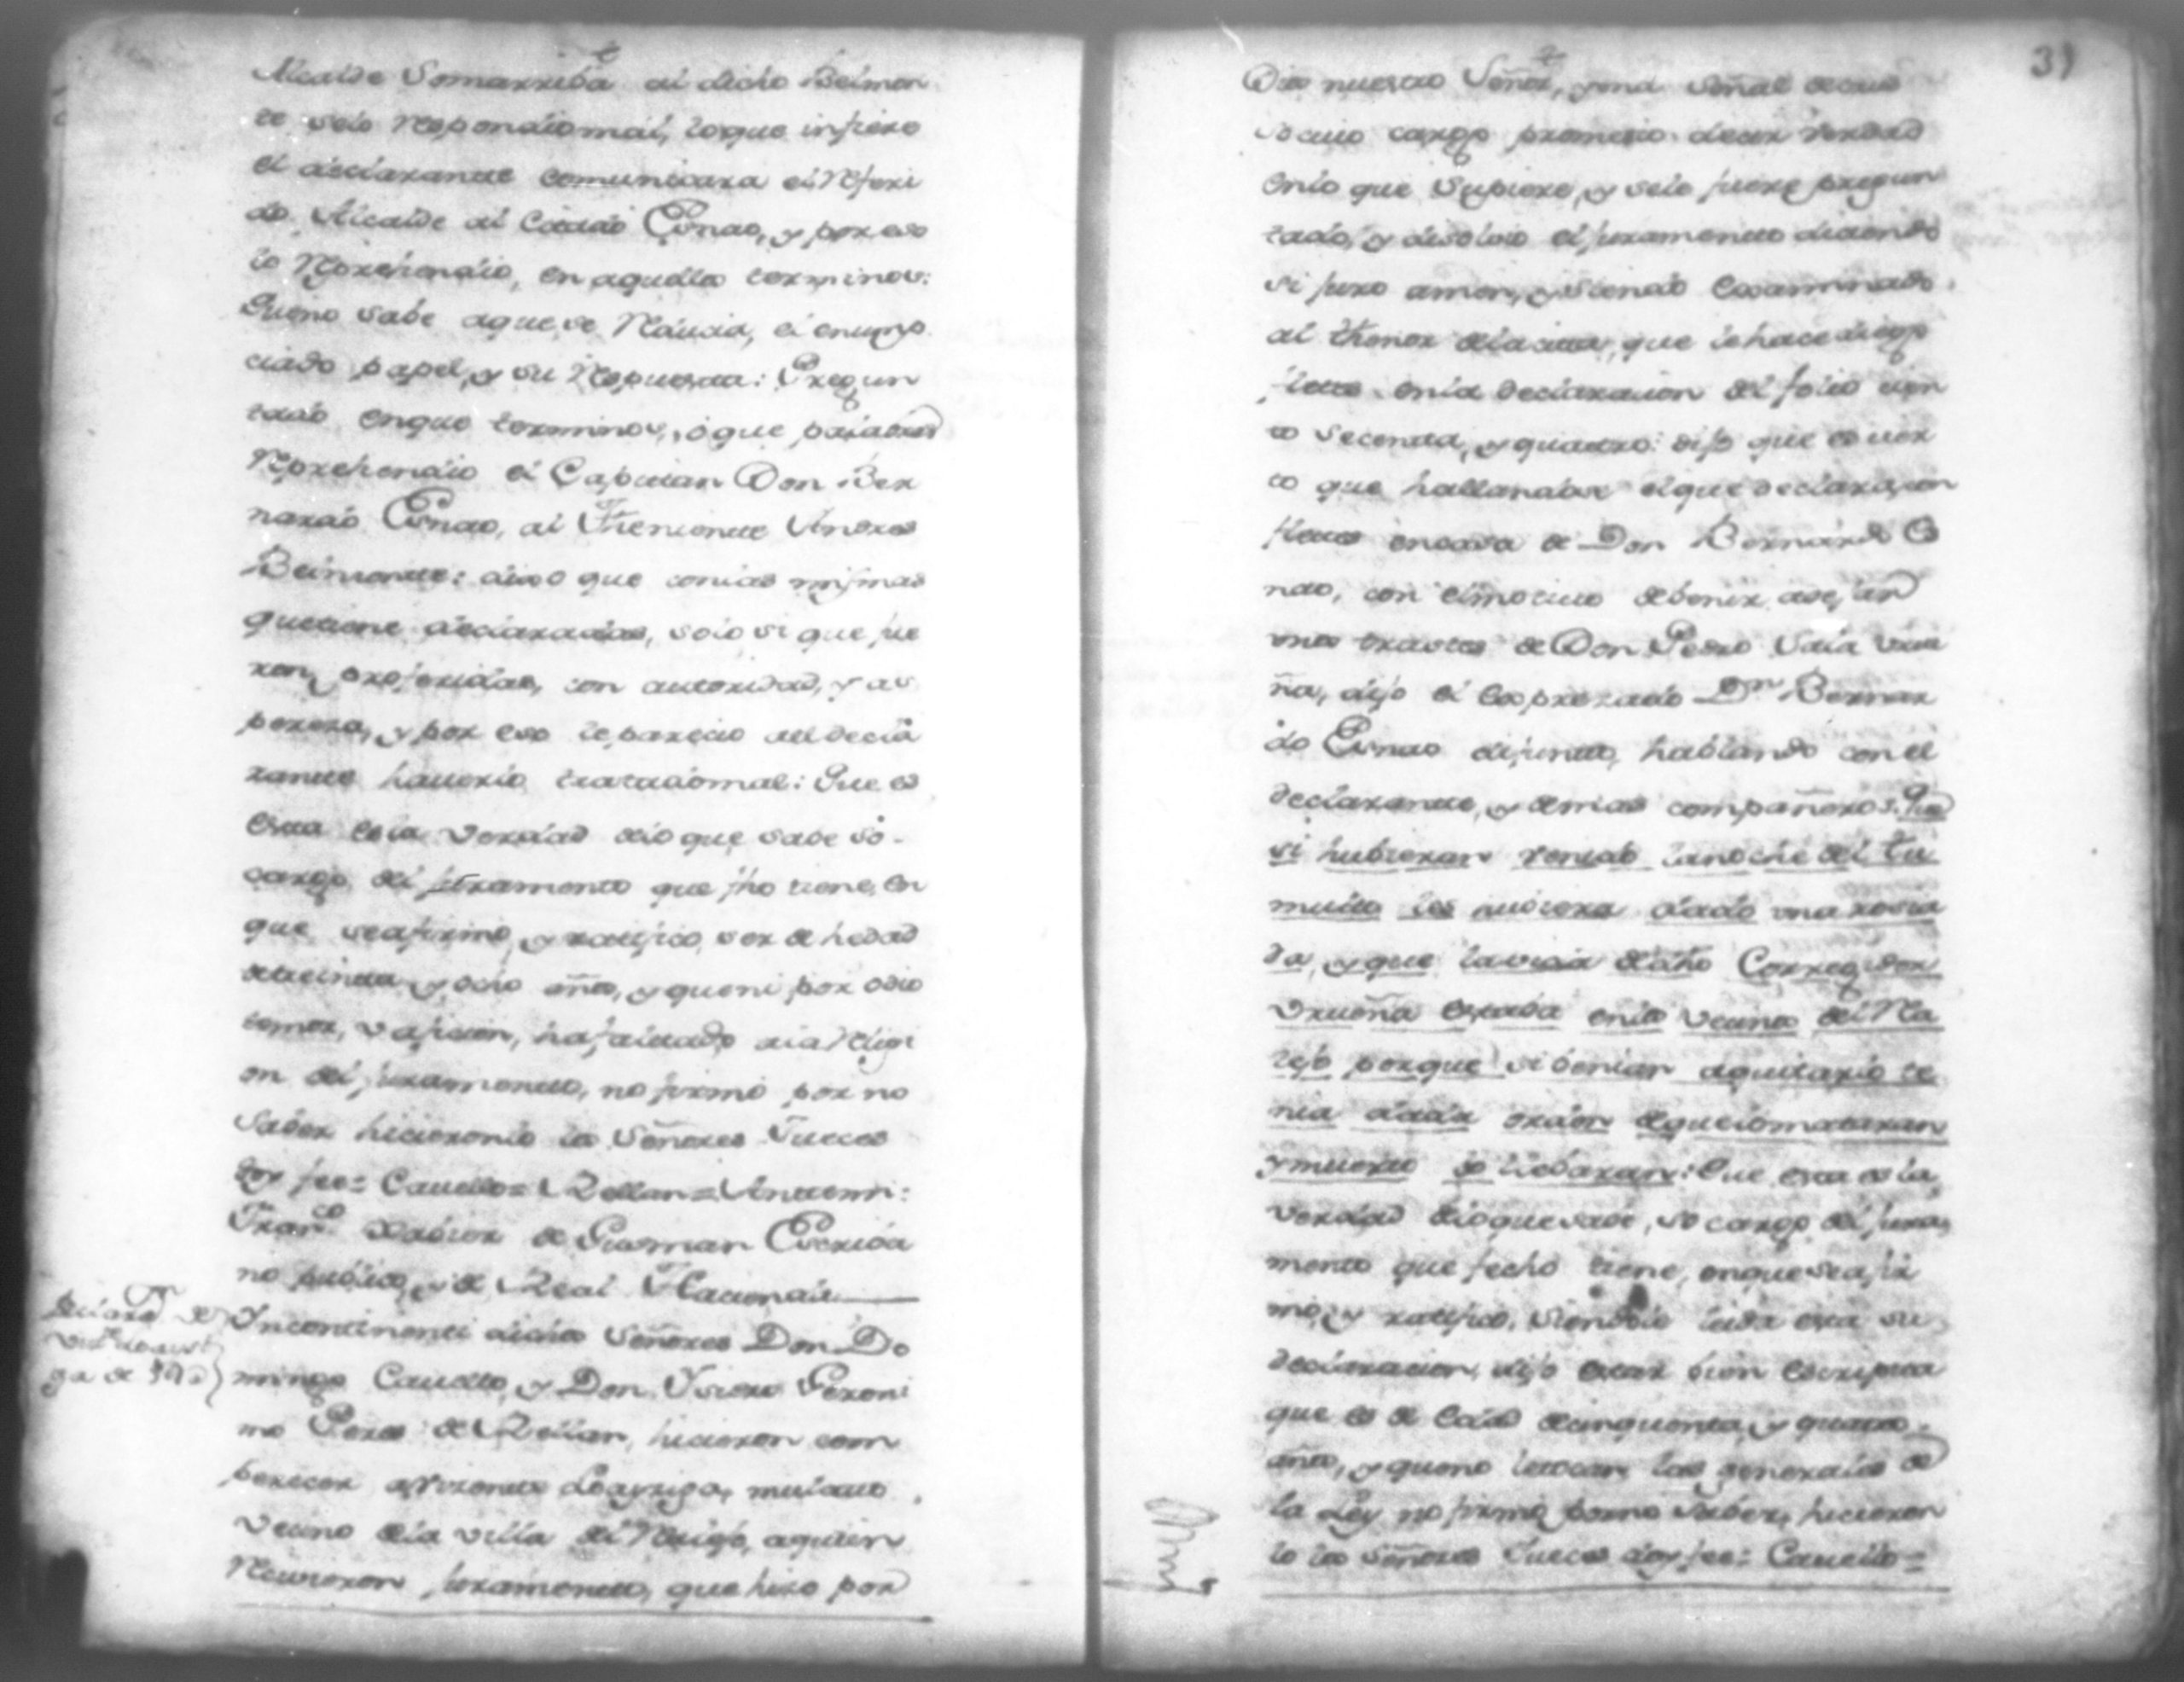 Alcalde Somarriba al dicho Belmon
te selo respondio mal, loque infiere
el declarante comunicara el referi
do Alcalde al Citado Esnao, y por eso
lo reprehendio, en aquellos terminos:
Queno sabe aque se reducia, el enunp
ciado papel, y su respuesta: Pregun
tado enque terminos, o que palabras
reprehendio el Capitan Don Ber
nardo Esnao, al Theniente Andres
Belmonte: dixo que conlas mismas
quetiene declaradas, solo si que fue
ron, proferidas, con autoridad, y as
pereza, y por eso le parecio al decla
rante hauerlo tratado mal: Que es
esta es la verdad delo que sabe so
cargo del juramento que fho tiene, en
que seafirmo, y ratifico, ser de hedad
de treinta y ocho años, y queni por odio
temor, v aficion, ha faltado ala religi
on del juramento, no firmo por no
saber hicieronlo los Señores Jueces
doy fee= Cauello= Rellan= Antemi:
Franco. Xabier de Gusman Escriba
no publico, y de Real Hacienda
Declaron. de
ga de 54 as.
Incontinenti dichos Señores Don Do
mingo Cauello, y Don Isidro Geroni
mo Peres de Rellan, hicieron com
perecer a Vicente Loayziga, mulato
vecino dela villa del Realejo, aquien
recivieron juramento, que hizo por
31
Dios nuestro Señor, y una Señal de cruz
so cuio cargo prometio decir verdad
enlo que supiere, y sele fuere pregun
tado, y absolvio el juramento diciendo
si juro amen, y siendo examinado
al thenor dela cita, que le hace diego
fletes enla declaracion del folio cien
to secenta, y quatro: dijo que es cier
to que hallandose elque declara, con
fletes encasa de Don Bernardo Es
nao, con el motivo debenir adejar
unos trastos de Don Pedro Sala Urue
ña, dijo el expresado Dn. Bernar
do Esnao difunto, hablando con el
declarante, y demas compañeros: Que
si hubieran venido lanoche del tu
multo les huviera dado una rosia
da, y que lavida deldho Corregidor
Urueña estaba enlos vecinos del Rea
lejo porque si benian aquitarlo te
nia dada orden deque lo mataran
y muerto lo llebaran: Que esta es la
verdad delo que sabe, so cargo del jura
mento que fecho tiene, enque seafir
mo, y ratifico, siendole leida esta su
declaracion, dijo estar bien escripta
que es de edad de cinquenta, y quatro
años, y queno letocan las generales de
la Ley no firmo porno saber, hicieron
lo los Señores Jueces doy fee= Cauello=